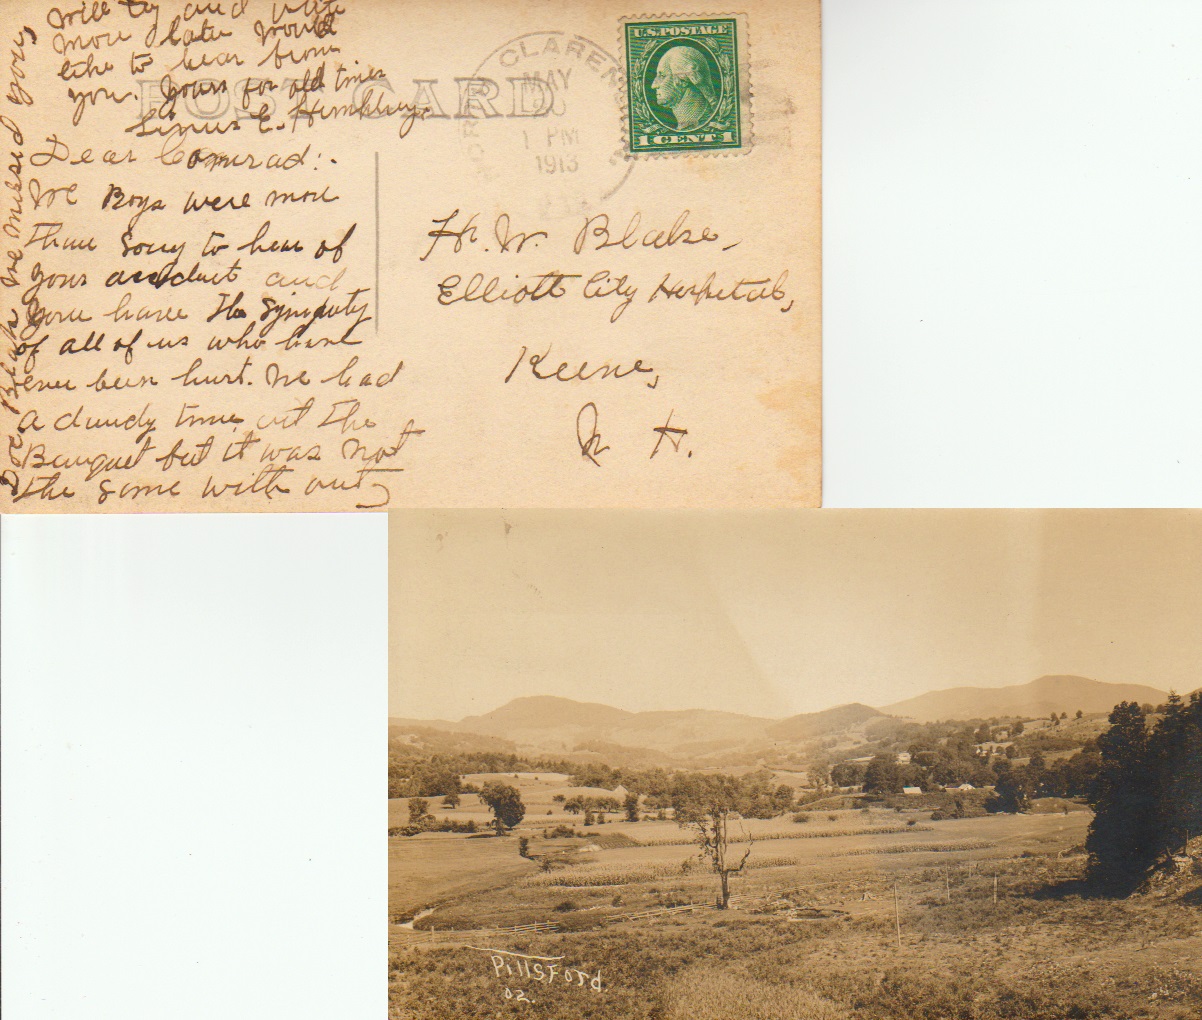 will try and write
more later would
like to hear from
you. Yours for old times
Linus E.
POST CARD
CLAREN
MAY
1 PM
1913
U.S. POSTAGE
1 CENT 1
Dear Comrad:.
We Boys were more
than sorry to hear of
your accident and
you have the sympaty
of all of us who have
ever been hurt. We had
a dandy time at the
Banquet but it was not
the same with out
Doc we missed you,
H. W. Blake,
Elliott City Hospital,
Keene,
N H.
Pillsford
02.